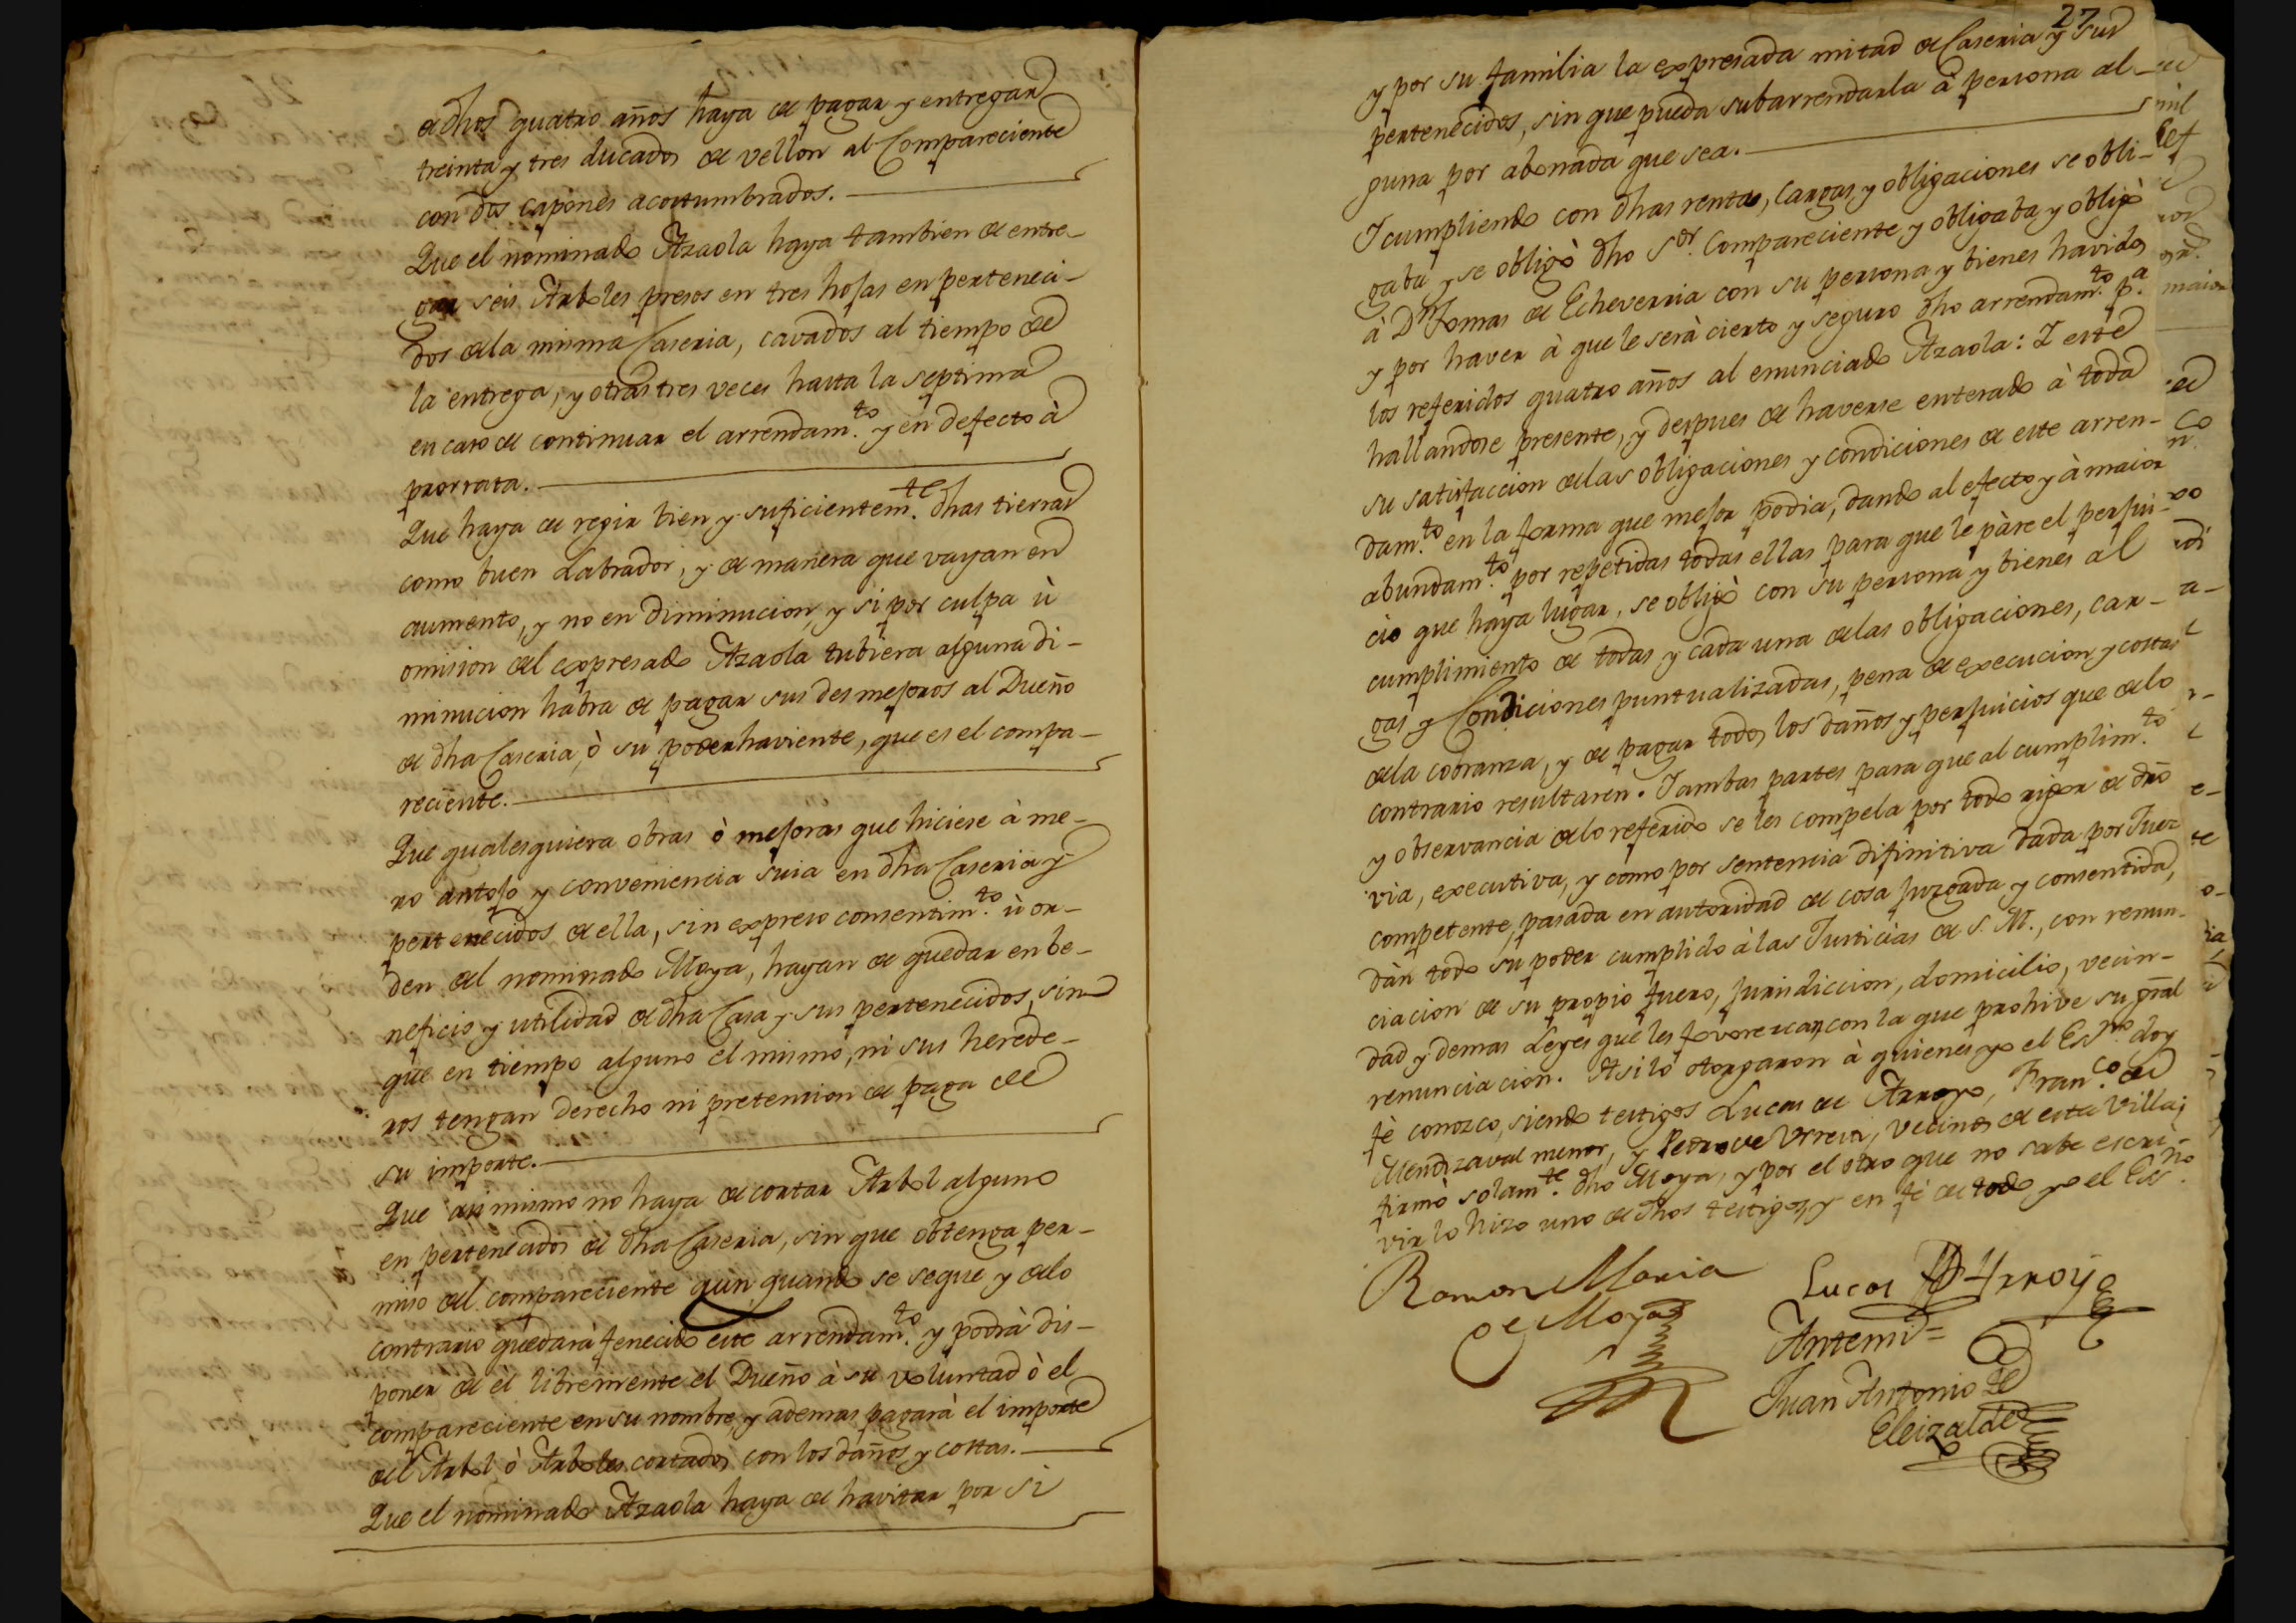 de dhos quatro años haya de pagar y entregar
treinta y tres ducados de vellon al Compareciente
con dos capones acostumbrados.
Que el nominado Azaola haya tambien de entre-
gar seis Arboles presos en tres hojas en perteneci-
dos de la misma Caseria, cavados al tiempo de
la entrega, y otras tres veces hasta la septima
en caso de continuar el arrendam.to y en defecto à
prorrata.
Que haya de regir bien y suficientem.te dhas tierras
como buen Labrador, y de manera que vayan en
aumento, y no en diminucion, y si por culpa ù
omision del expresado Azaola tubiera alguna di-
minucion habra de pagar sus desmejoros al Dueño
de dha Caseria, ò su poderhaviente, que es el compa-
reciente.
Que qualesquiera obras ò mejoras que hiciese à me-
ro antojo y conveniencia suia en dha Caseria y
pertenecidos de ella, sin expreso consentim.to ù or-
den del nominado Moya, hayan de quedar en be-
neficio y utilidad de dha Casa y sus pertenecidos, sin
que en tiempo alguno el mismo, ni sus herede-
ros tengan derecho ni pretension de paga de
su importe.
Que asimismo no haya de cortar Arbol alguno
en pertenecidos de dha Caseria, sin que obtenga per-
miso del compareciente aun quando se seque y de lo
contrario quedará fenecido este arrendam.to y podrà dis-
poner de èl libremente el Dueño à su voluntad ò el
compareciente en su nombre, y ademas pagarà el importe
del Arbol ò Arboles cortados con los daños y costas.
Que el nominado Azaola haya de havitar por si
27
y por su familia la expresada mitad de Caseria y sus
pertenecidos, sin que pueda subarrendarla à persona al-
guna por abonada que sea.
I cumpliendo con dhas rentas, Cargas y obligaciones se obli-
gaba y se obligò dho S.or Compareciente y obligaba y obligò
à D.n Tomas de Echeverria con su persona y bienes havidos
y por haver à que le serà cierto y seguro dho arrendam.to p.a
los referidos quatro años al enunciado Azaola: I este
hallandose presente, y despues de haverse enterado à toda
su satisfaccion de las obligaciones y condiciones de este arren-
dam.to en la forma que mejor podia, dando al efecto y à maior
abundam.to por repetidas todas ellas para que le pàre el perjui-
cio que haya lugar, se obligò con su persona y bienes al
cumplimiento de todas y cada una de las obligaciones, car-
gas y Condiciones puntualizadas, pena de execucion y costas
de la cobranza, y de pagar todos los daños y perjuicios que de lo
contrario resultaren. I ambas partes para que al cumplim.to
y observancia de lo referido se les compela por todo rigor de dro
via, executiva, y como por sentencia difinitiva dada por Juez
competente, pasada en autoridad de cosa juzgada y consentida,
dàn todo su poder cumplido à las Justicias de S. M., con renun-
ciacion de su propio fuero, jurisdiccion, domicilio, vecin-
dad y demas Leyes que les favorezcan con la que prohive su gral
renunciacion. Asi lo otorgaron à quienes yo el Es.no doy
fè conozco, siendo testigos Lucas de Arroyo, Fran.co de
Mendizaval menor, y Pedro de Urreta, vecinos de esta Villa;
firmò solam.te dho Moya, y por el otro que no sabe escri-
vir lo hizo uno de dhos testigos, y en fè de todo yo el Ess.no
Ramon Maria
de Moya
Lucas de Arroyo
Antemi=
Juan Antonio de
Eleizalde